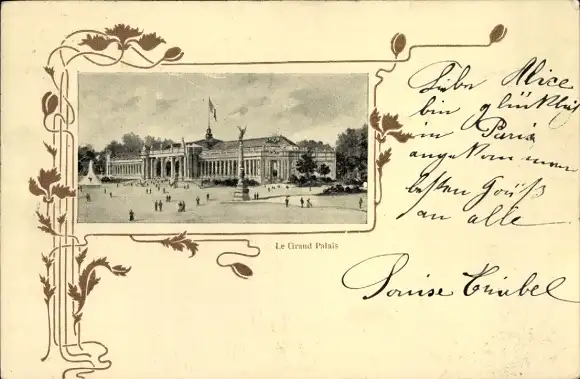 Le Grand Palais
Liebe Alice
bin glücklich
in Paris
angekommen
besten Gruß
an alle
Louise